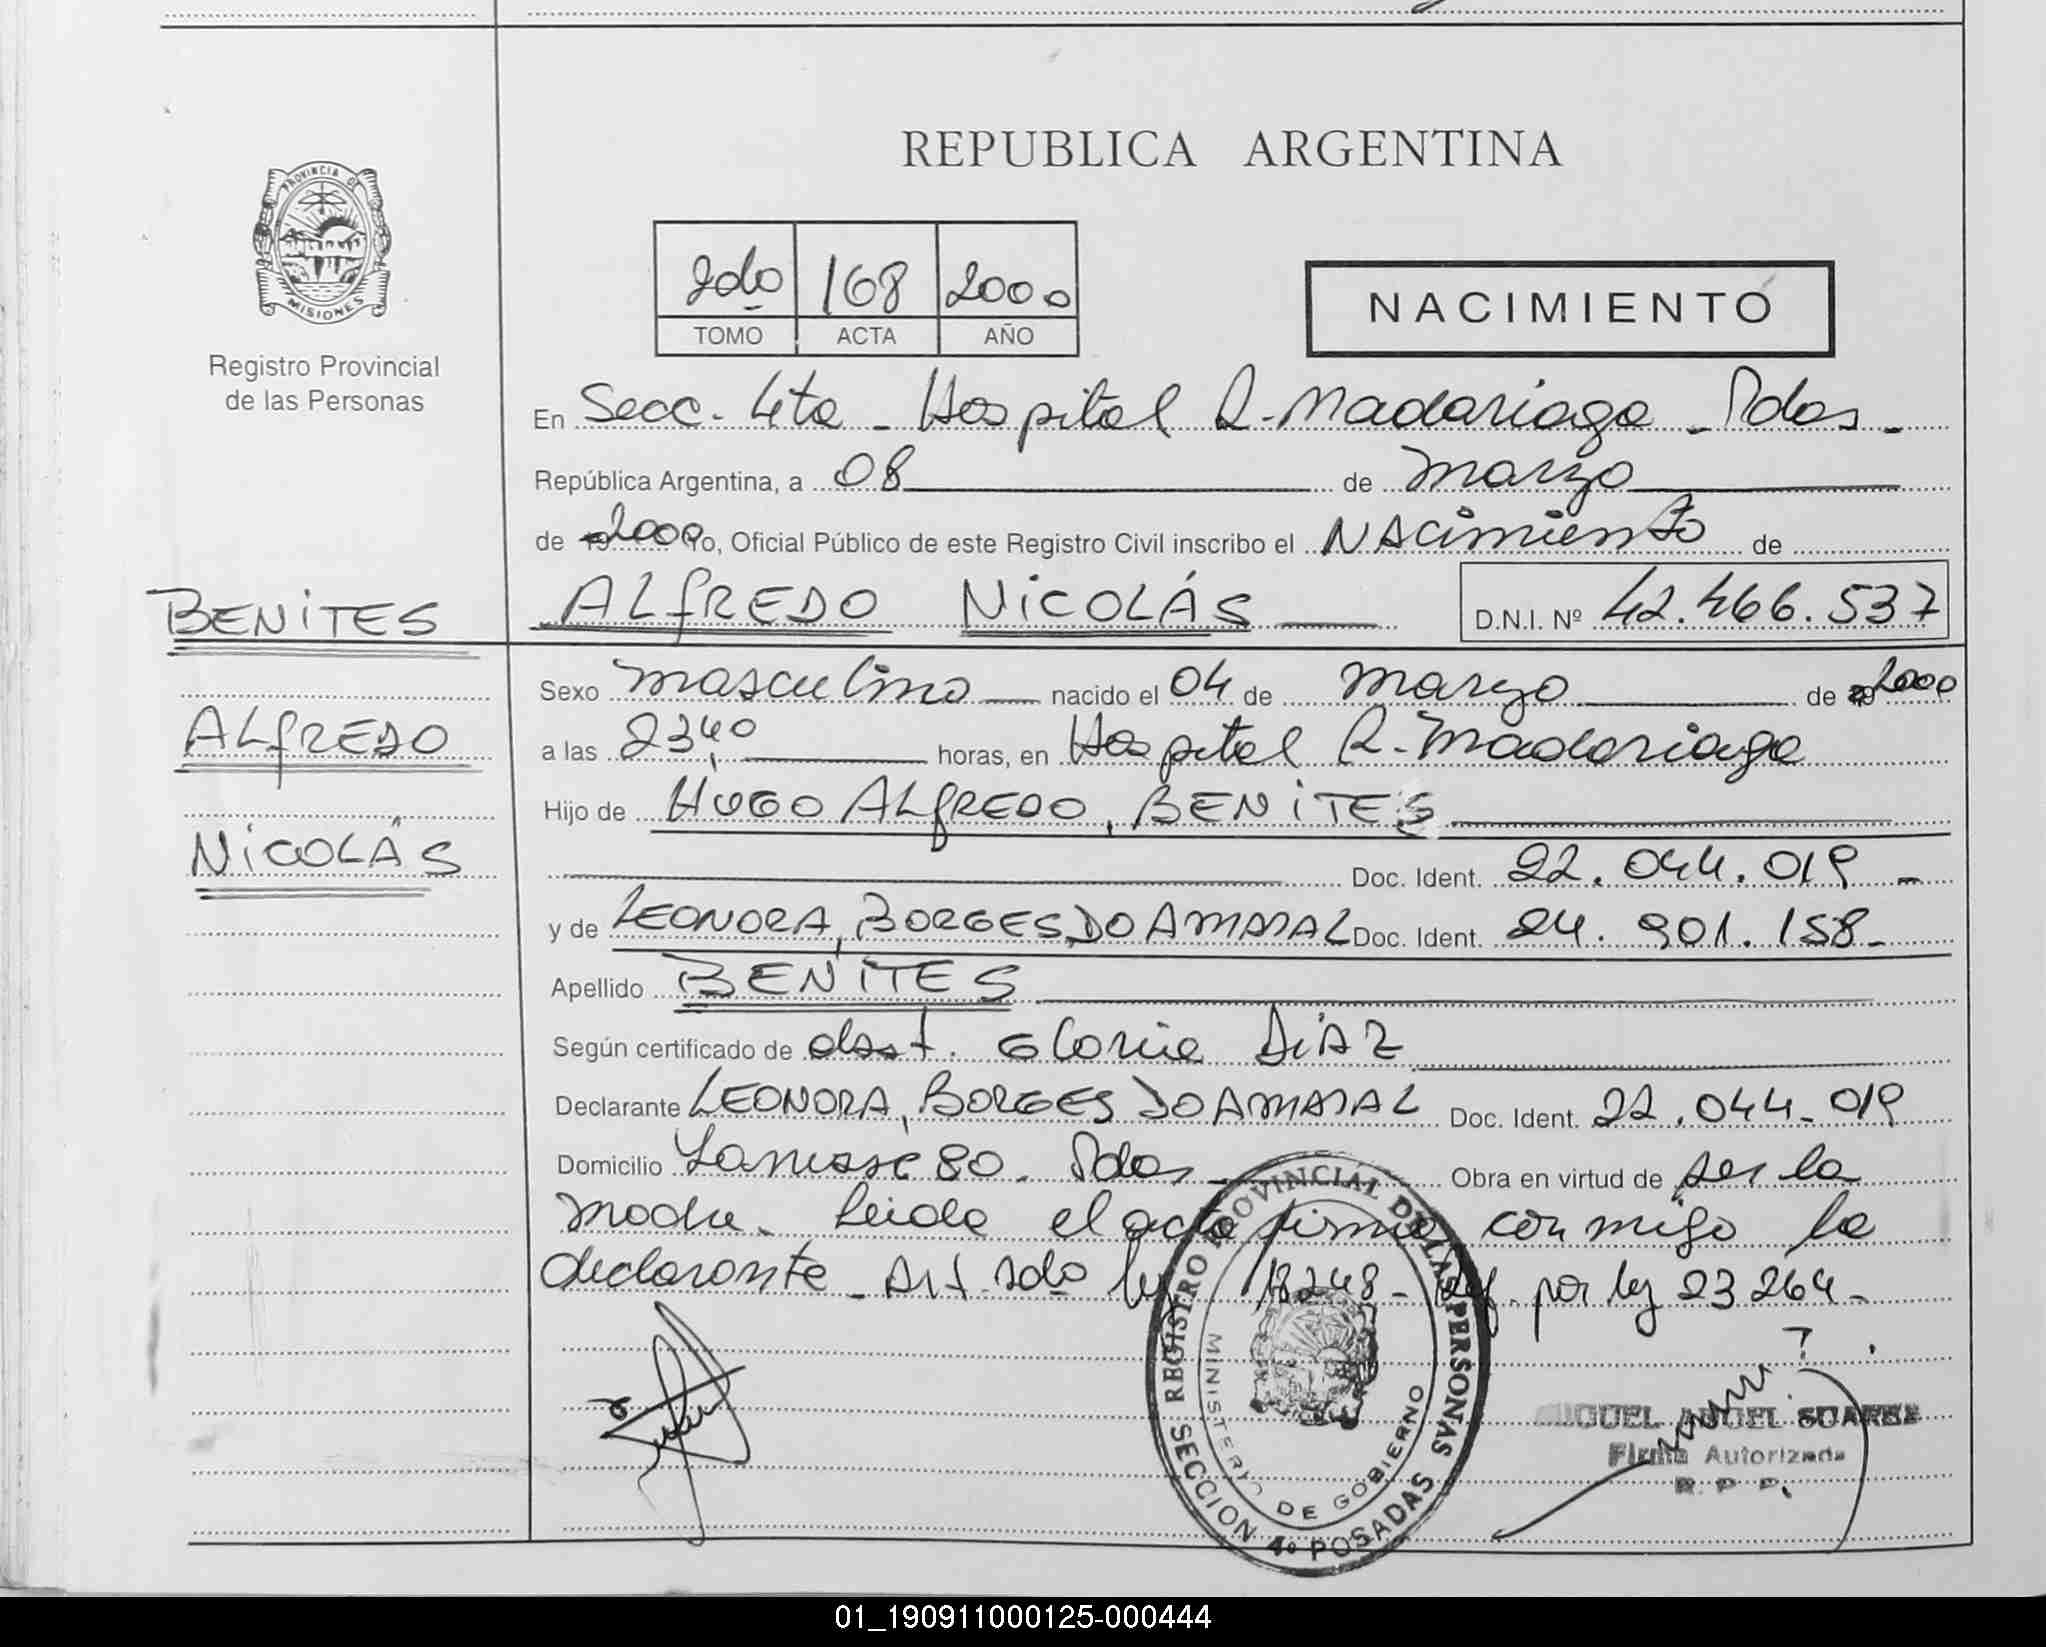 REPUBLICA ARGENTINA
PROVINCIA DE
MISIONES
Registro Provincial
de las Personas
2do 168 2000
TOMO ACTA AÑO
NACIMIENTO
En Secc. 4ta - Hospital R. Madariaga - Pdas -
República Argentina, a 08 de Marzo
de 2000 Yo, Oficial Público de este Registro Civil inscribo el NAcimiento de
ALfREDO NICOLÁS D.N.I. Nº 42.466.537
BENITES
ALfREDO
NICOLÁS
Sexo masculino nacido el 04 de marzo de 2000
a las 23,40 horas, en Hospital R. Madariaga
Hijo de HUGO ALfREDO, BENITES
Doc. Ident. 22.044.019 -
y de LEONORA, BORGES DO AMARAL Doc. Ident. 24.901.158 -
Apellido BENITES
Según certificado de obst. Gloria DiAZ
Declarante LEONORA, BORGES DO AMARAL Doc. Ident. 22.044.019
Domicilio 80 - Pdas - Obra en virtud de ser la
madre. Leida el acta firma conmigo la
declarante - Art. 2do ley 18248 - Ref. por ley 23264 -
REGISTRO PROVINCIAL DE LAS PERSONAS
MINISTERIO DE GOBIERNO
SECCION 4º POSADAS
MIGUEL ANGEL SUAREZ
Firma Autorizada
R. P. P.
01_190911000125-000444